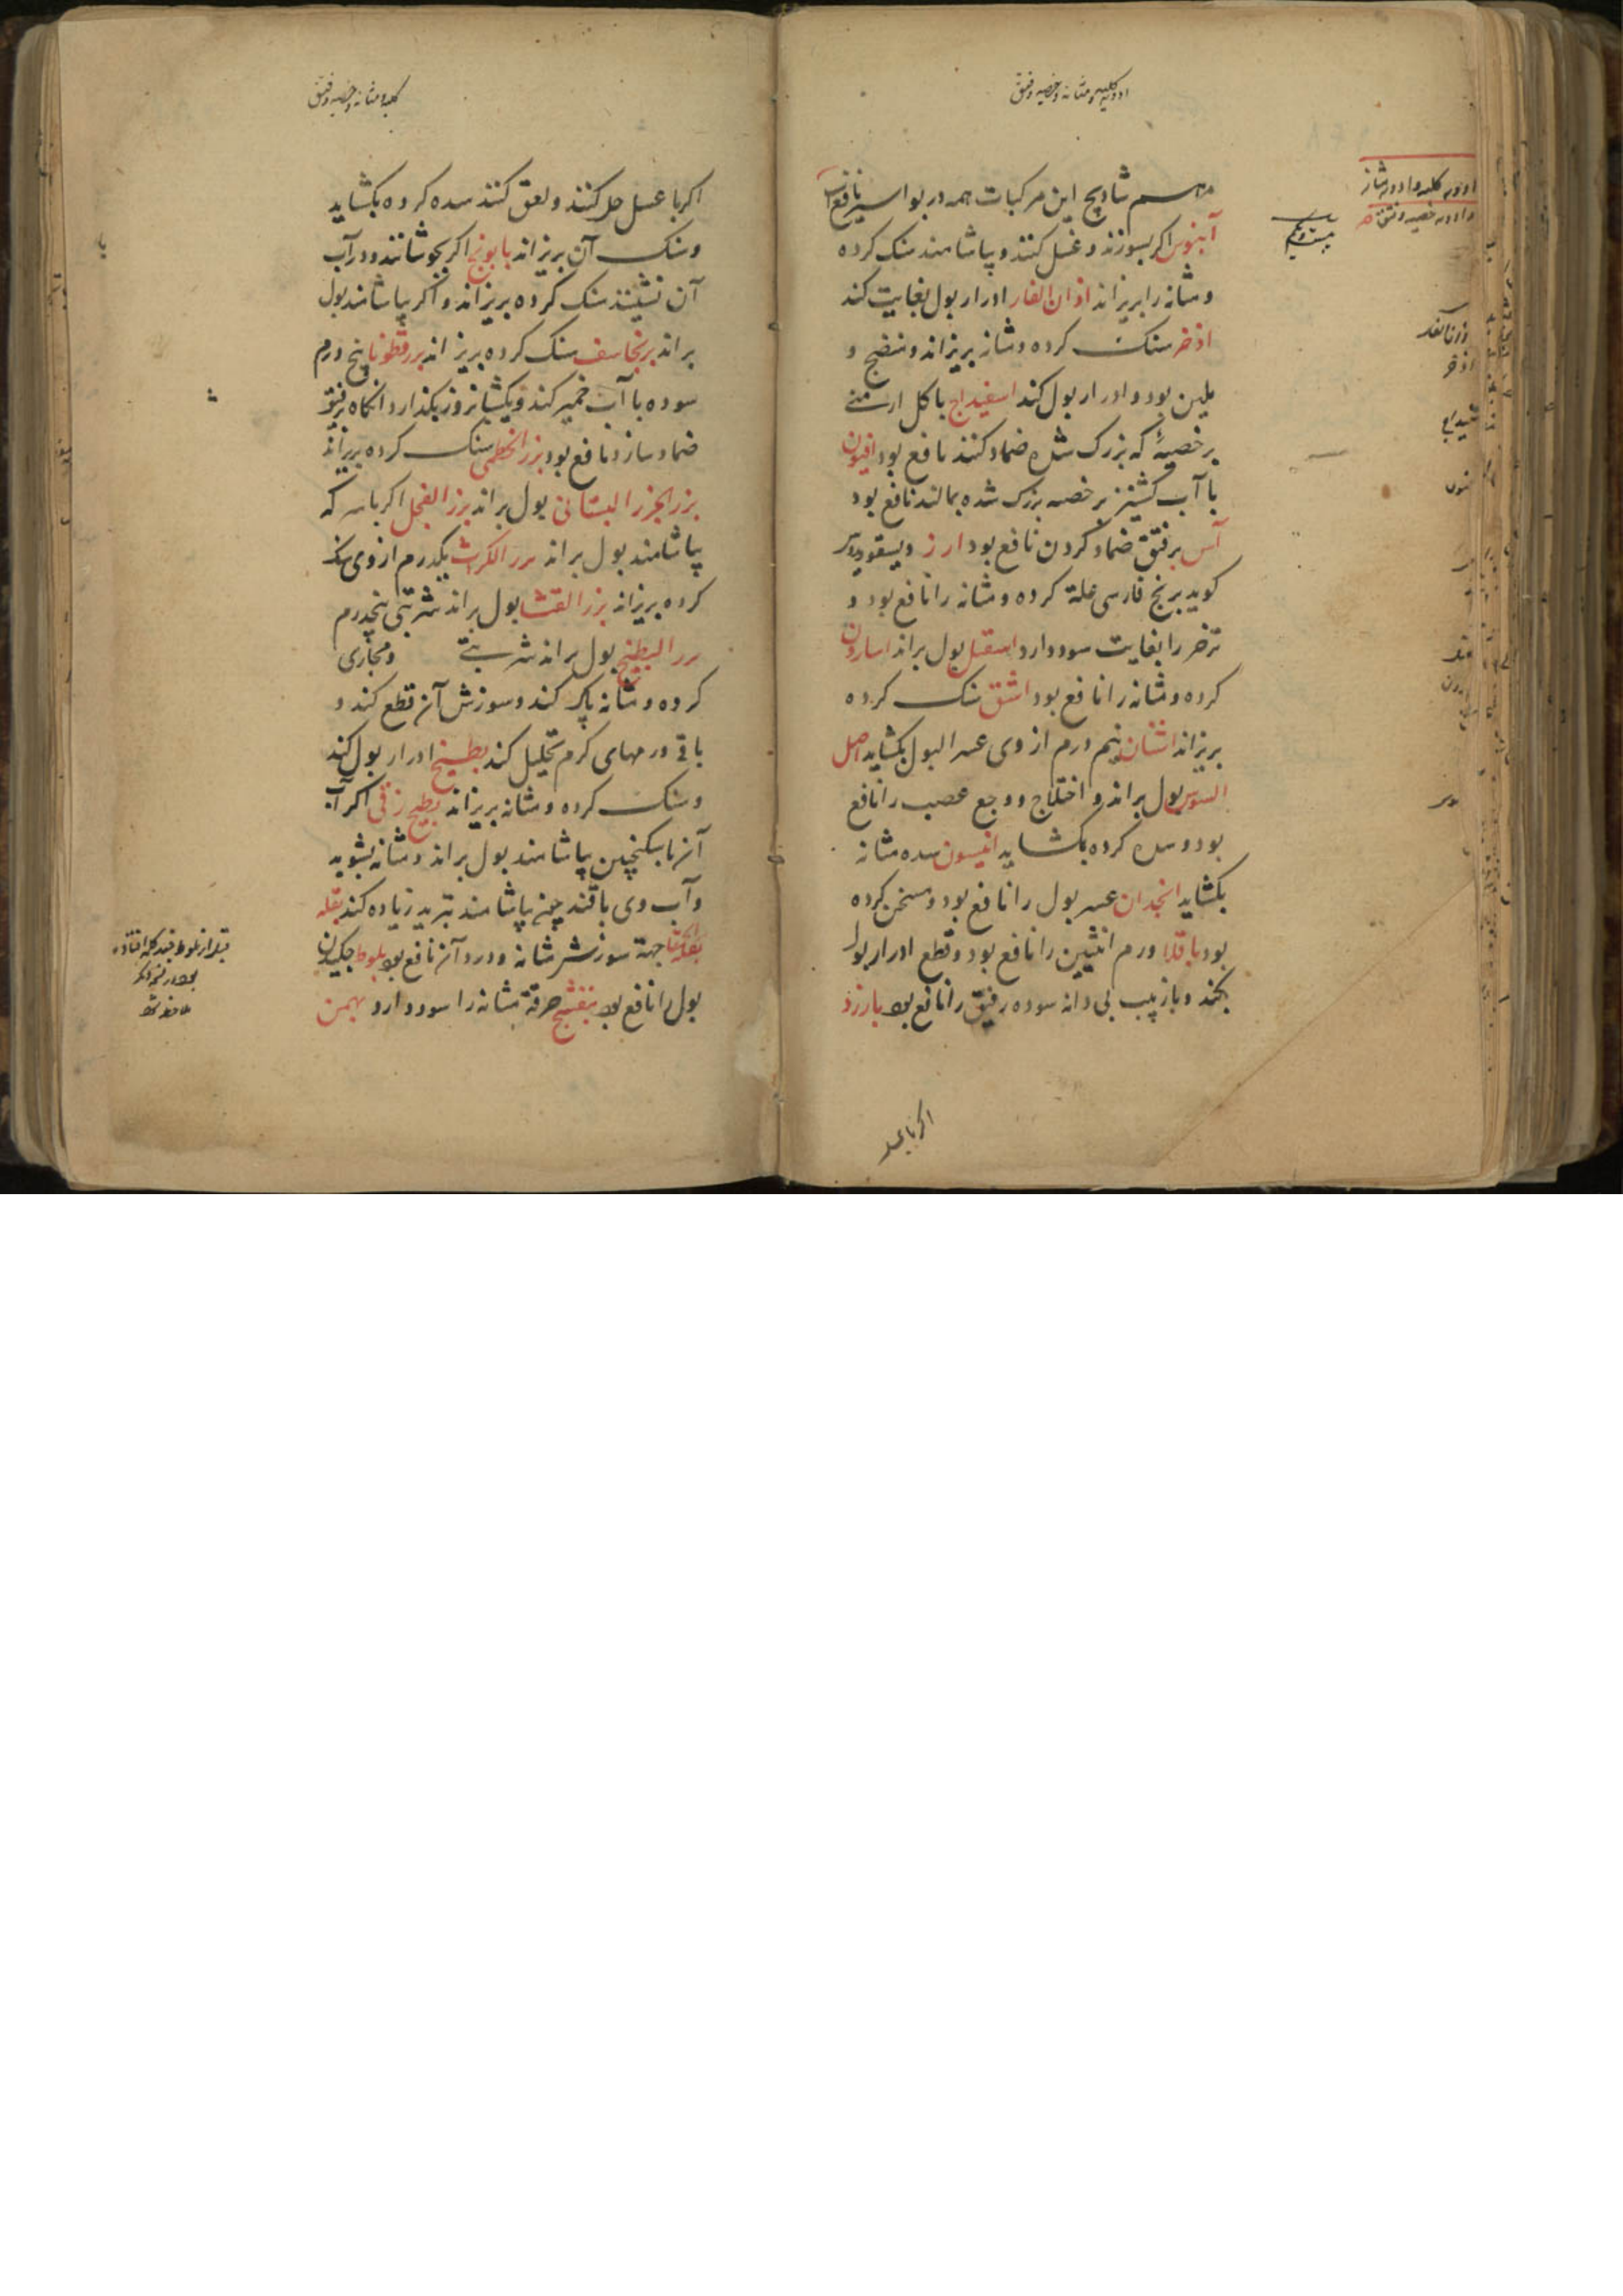 ادویه کلیه و مثانه و خصیه و فتق
مرهم شادنج این مرکبات همه در بواسیر نافع است
آبنوس اکر بسوزند و غسل کنند و بیاشامند سنک کرده
و مثانه را بریزاند اذان الفار ادرار بول بغایت کند
اذخر سنک کرده و مثانه بریزاند و منضج و
ملین بود و ادرار بول کند اسفیداج با کل ارمنی
بر خصیهٔ که بزرک شده ضماد کنند نافع بود افیون
با آب کشنیز بر خصیه بزرک شده بمالند نافع بود
آس بر فتق ضماد کردن نافع بود ارز دیسقوریدس
کوید برنج فارسی علة کرده و مثانه را نافع بود و
زخر را بغایت سود دارد اسقیل بول براند اسارون
کرده و مثانه را نافع بود اشق سنک کرده
بریزاند اشنان نیم درم از وی عسر البول بکشاید اصل
السوس بول براند و اختلاج و وجع عصب را نافع
بود و سده کرده بکشاید انیسون سده مثانه
بکشاید انجدان عسر بول را نافع بود و مسخن کرده
بود باقلا ورم انثیین را نافع بود و قطع ادرار بول
بکند و با زبیب بی دانه سوده فتق را نافع بود بارزد
اکر با عسل
ادویه کلیه و ادویه مثانه
و ادویه خصیه و فتق
بیست و یکم
اذخر
کلیه و مثانه و خصیه و فتق
اکر با عسل حل کنند و لعق کنند سده کرده بکشاید
و سنک آن بریزاند بابونج اکر بجوشانند و در آب
آن نشینند سنک کرده بریزاند و اکر بیاشامند بول
براند برنجاسف سنک کرده بریزاند بزرقطونا پنج درم
سوده با آب خمیر کند و یکشبانروز بکذارد انکاه بر فتق
ضماد سازد نافع بود بزر الخطمی سنک کرده بریزاند
بزر الجزر البستانی بول براند بزر الفجل اکر با سرکه
بیاشامند بول براند بزر الکراث یکدرم از وی سنک
کرده بریزاند بزر القثا بول براند شربتی پنجدرم
بزر البطیخ بول براند شربتی و مجاری
کرده و مثانه پاک کند و سوزش آن قطع کند و
باقی ورمهای کرم تحلیل کند بطیخ ادرار بول کند
و سنک کرده و مثانه بریزاند بطیخ زقی اکر آب
آنرا با سکنجبین بیاشامند بول براند و مثانه بشوید
و آب وی با قند چون بیاشامند تبرید زیاده کند بقله
الحمقا جهة سوزش مثانه و درد آن نافع بود بلوط چکیدن
بول را نافع بود بنفشج حرقة مثانه را سود دارد بهمن